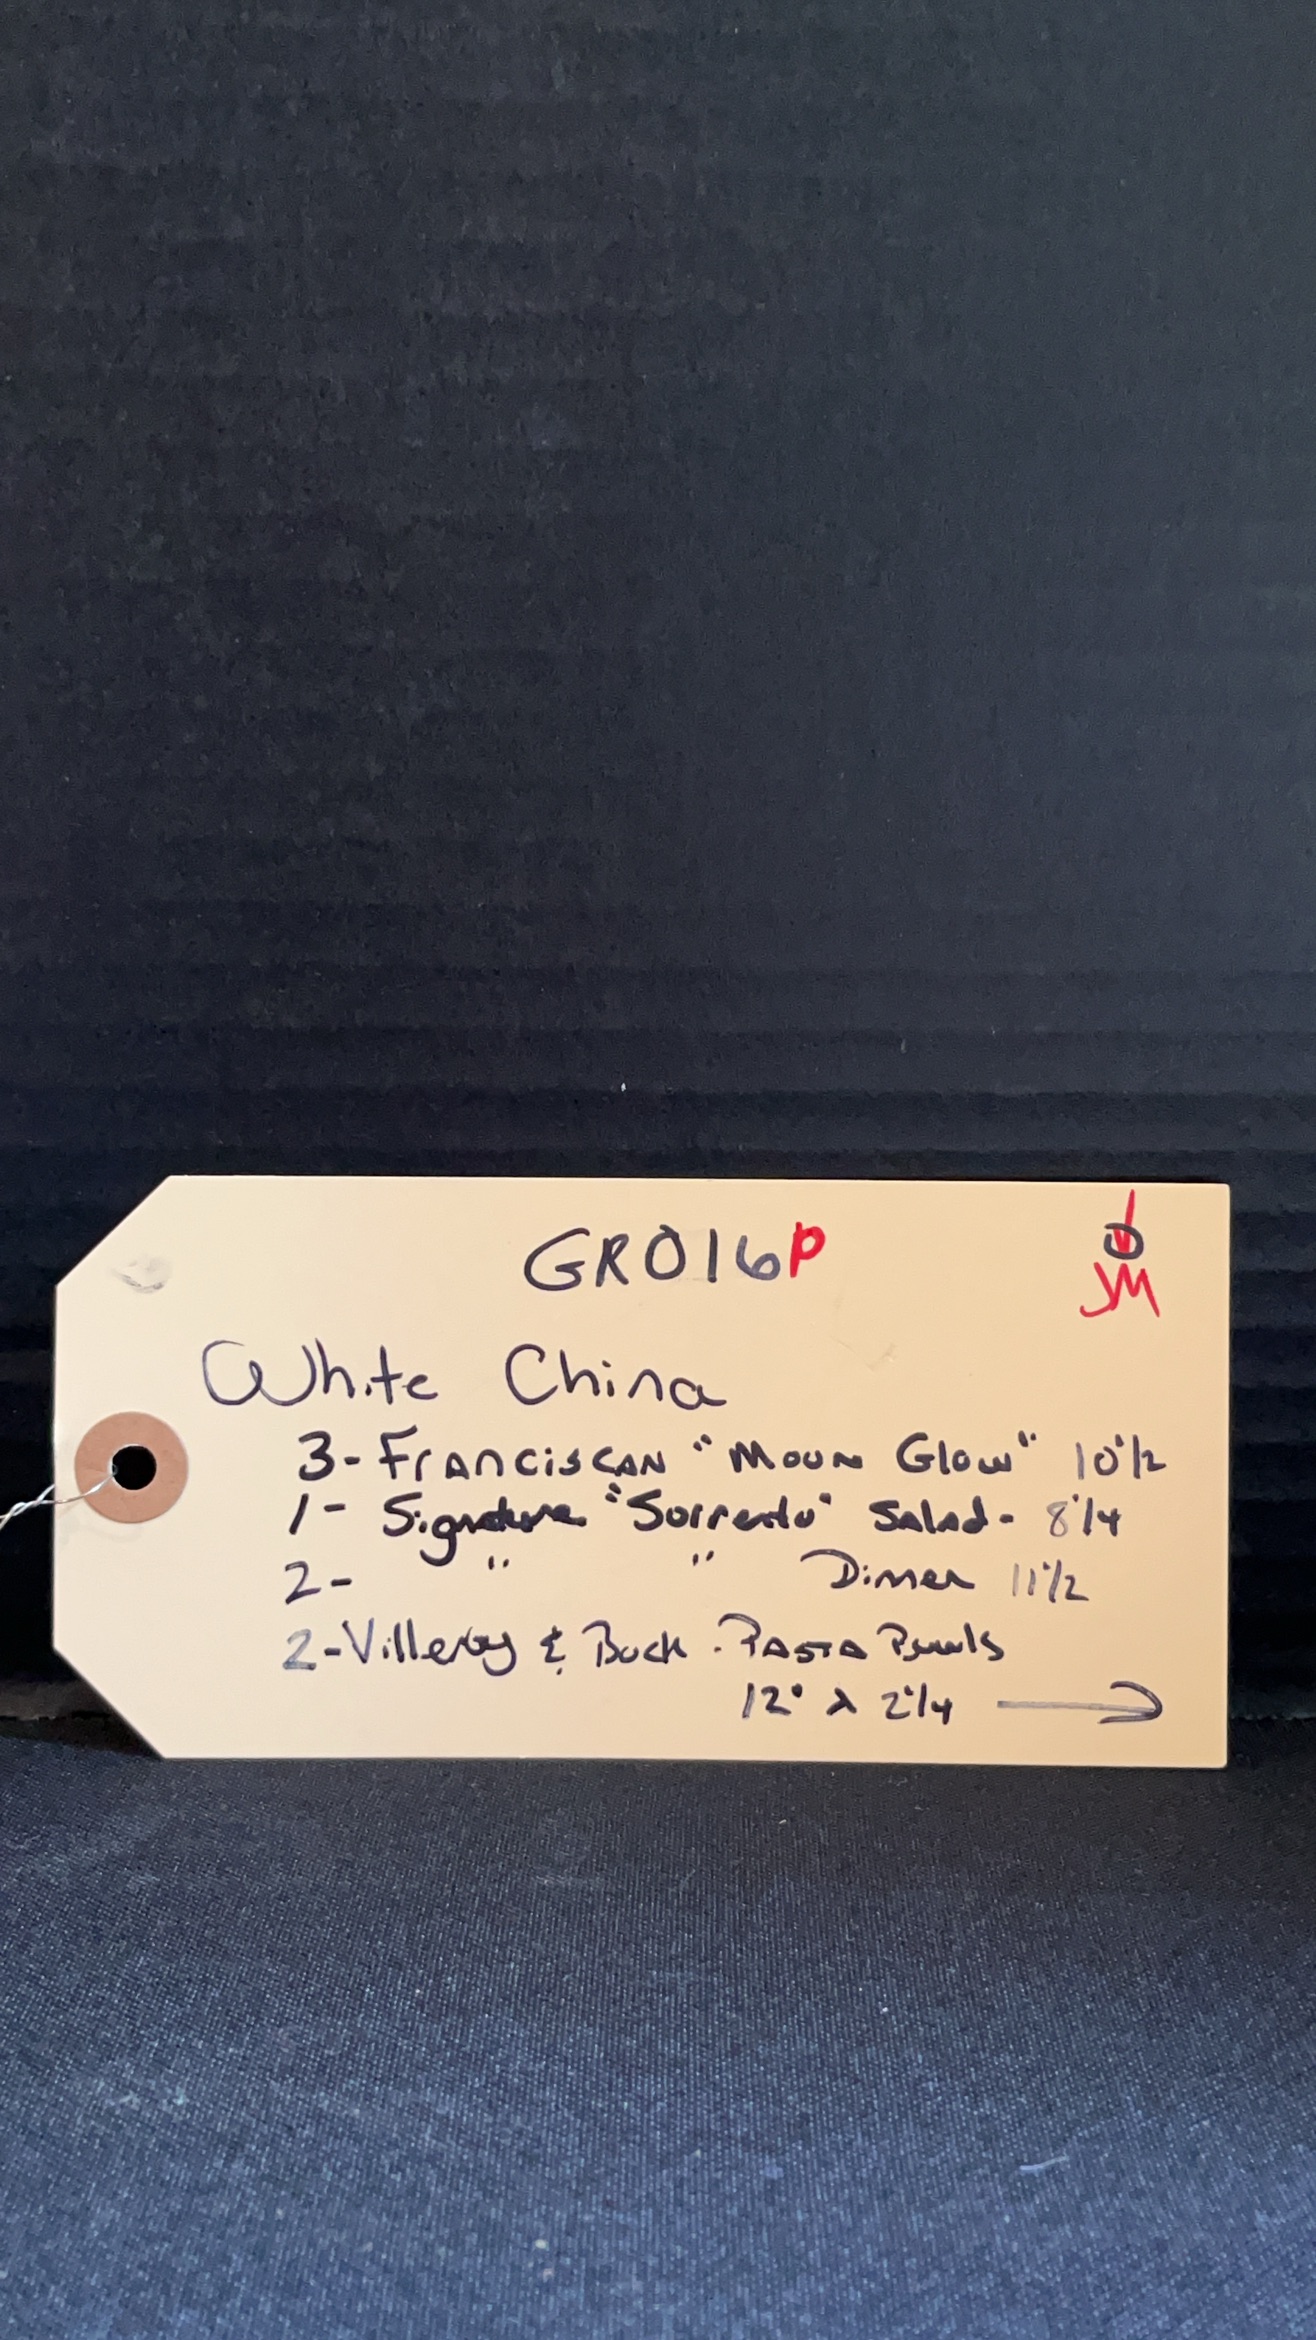 GR016P
JM
White China
3- Franciscan "Moon Glow" 10 1/2
1- Signature "Sorrento" Salad - 8 1/4
2- " " Dinner 11 1/2
2- Villeroy & Boch - Pasta Bowls
12" x 2 1/4 →